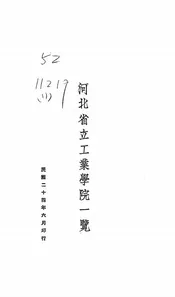 52
11219
(1)
河北省立工業學院一覽
民國二十四年六月印行